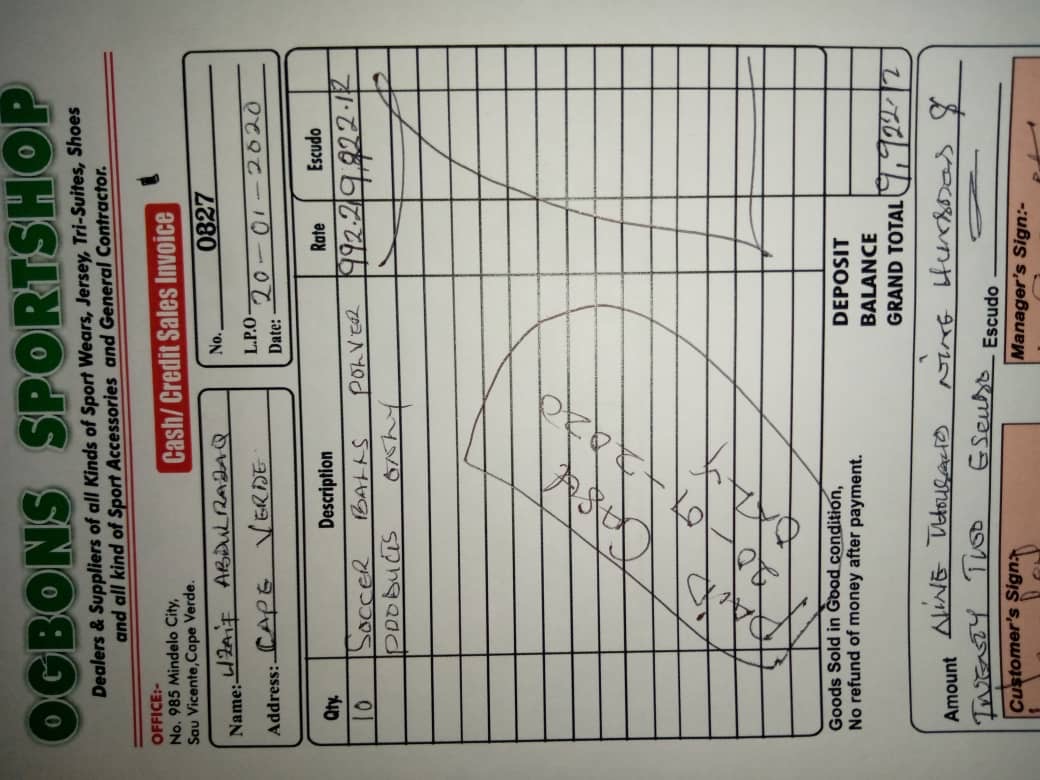 OGBONS SPORTSHOP
Dealers & Suppliers of all Kinds of Sport Wears, Jersey, Tri-Suites, Shoes
and all kind of Sport Accessories and General Contractor.
OFFICE:-
No. 985 Mindelo City,
Sau Vicente, Cape Verde.
Cash/ Credit Sales Invoice
Name: UZAIF ABDULRAZAQ
Address: CAPE VERDE
No. 0827
L.P.O
Date: 20-01-2020
Qty. Description Rate Escudo
10 SOCCER BALLS 992.2 9,922.12
ONLY
Goods Sold in Good condition,
No refund of money after payment.
DEPOSIT
BALANCE
GRAND TOTAL 9,922.12
Amount NINE THOUSAND NINE HUNDRED &
TWENTY TWO ESCUDO Escudo
Customer's Sign:-
Manager's Sign:-